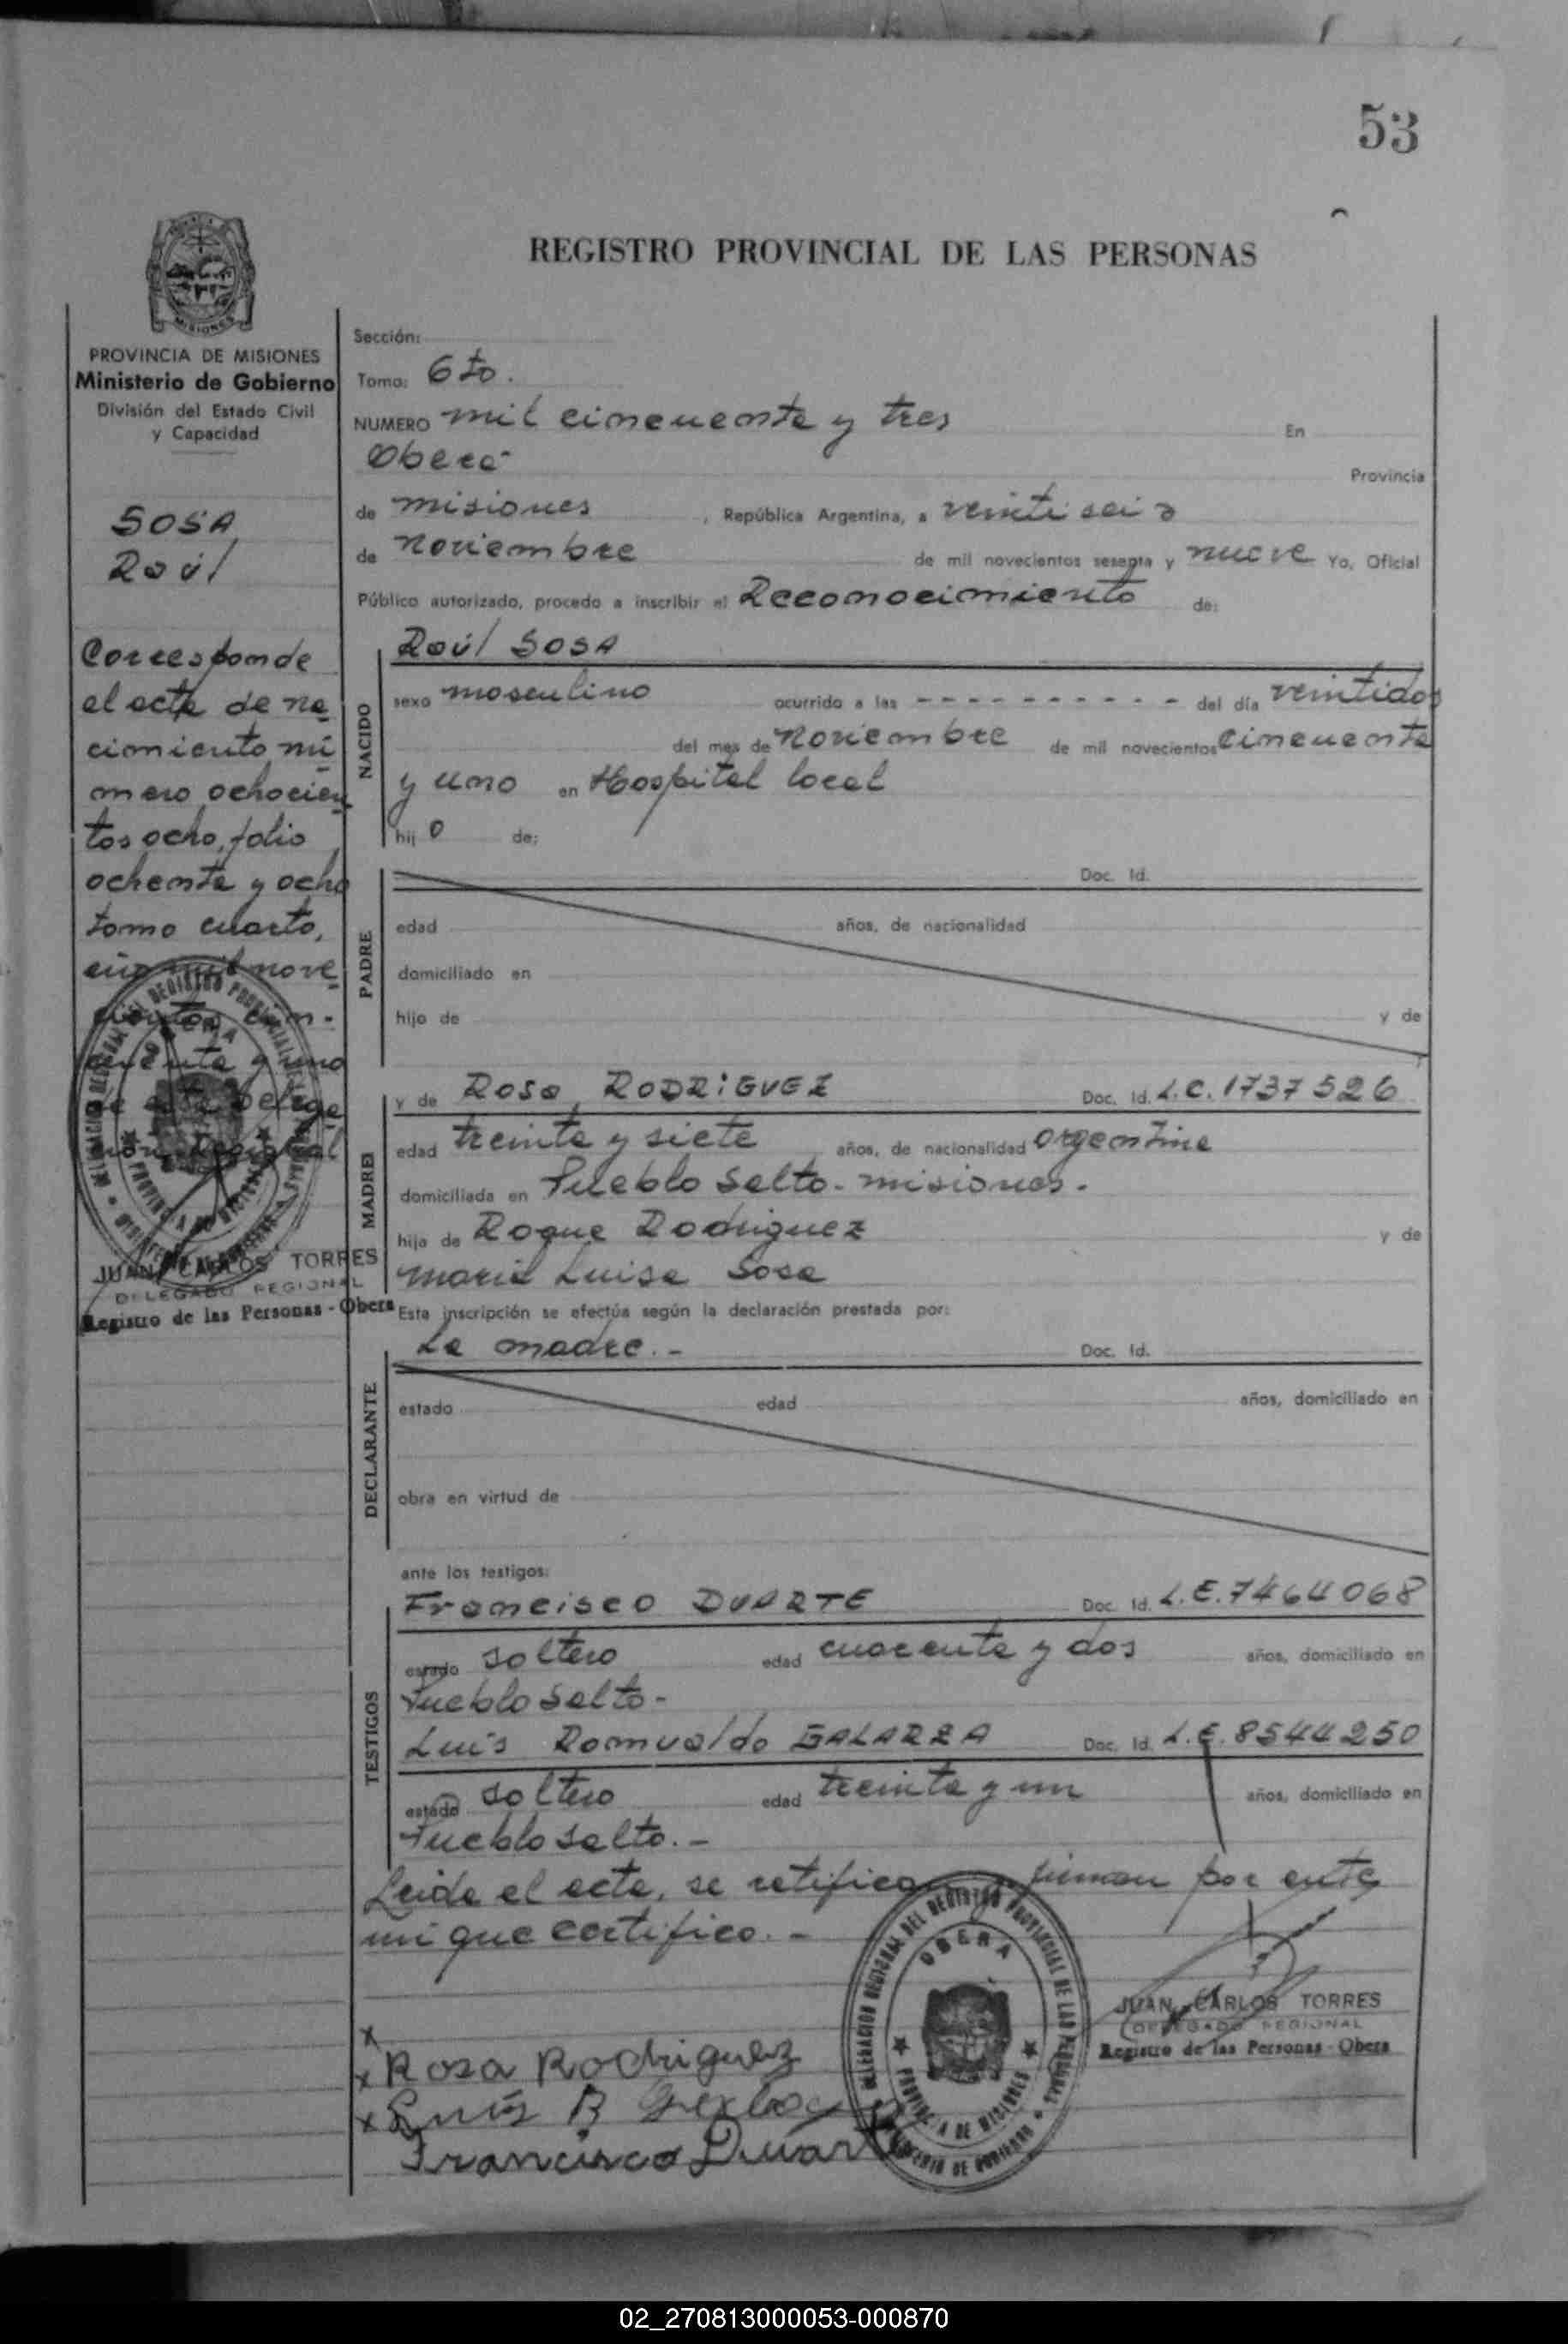 53
REGISTRO PROVINCIAL DE LAS PERSONAS
MISIONES
PROVINCIA DE MISIONES
Ministerio de Gobierno
División del Estado Civil
y Capacidad
SOSA
Raúl
Corresponde
al acta de na
cimiento nú
mero ochocien
tos ocho, folio
ochenta y ocho
tomo cuarto,
año mil nove
cientos cin-
cuenta y uno
de esta Delega
ción Regional
JUAN CARLOS TORRES
DELEGADO REGIONAL
Registro de las Personas - Obera
Sección:
Tomo: 6to.
NUMERO mil cincuenta y tres En
Oberá Provincia
de misiones, República Argentina, a veintiseis
de noviembre de mil novecientos sesenta y nueve Yo, Oficial
Público autorizado, procedo a inscribir el Reconocimiento de:
NACIDO
Raúl SOSA
sexo masculino ocurrido a las - - - - - - - - - - del día veintidos
del mes de noviembre de mil novecientos cincuenta
y uno en Hospital local
hij o de:
PADRE
Doc. Id.
edad años, de nacionalidad
domiciliado en
hijo de y de
MADRE
y de Rosa RODRIGUEZ Doc. Id. L.C. 1737526
edad treinta y siete años, de nacionalidad argentina
domiciliada en Pueblo Salto - misiones.
hija de Roque Rodriguez y de
maria Luisa Sosa
Esta inscripción se efectúa según la declaración prestada por:
DECLARANTE
La madre. - Doc. Id.
estado edad años, domiciliado en
obra en virtud de
ante los testigos:
TESTIGOS
Francisco DUARTE Doc. Id. L.E. 7464068
estado soltero edad cuarenta y dos años, domiciliado en
Pueblo Salto -
Luis Romualdo GALARZA Doc. Id. L.E. 8544250
estado soltero edad treinta y un años, domiciliado en
Pueblo Salto. -
Leida el acta, se ratifican firman por ante
mi que certifico. -
DELEGACION REGIONAL DEL REGISTRO PROVINCIAL DE LAS PERSONAS
OBERA
PROVINCIA DE MISIONES
MINISTERIO DE GOBIERNO
JUAN CARLOS TORRES
DELEGADO REGIONAL
Registro de las Personas - Obera
x
x Rosa Rodriguez
x Luis R
Francisco Duarte
02_270813000053-000870